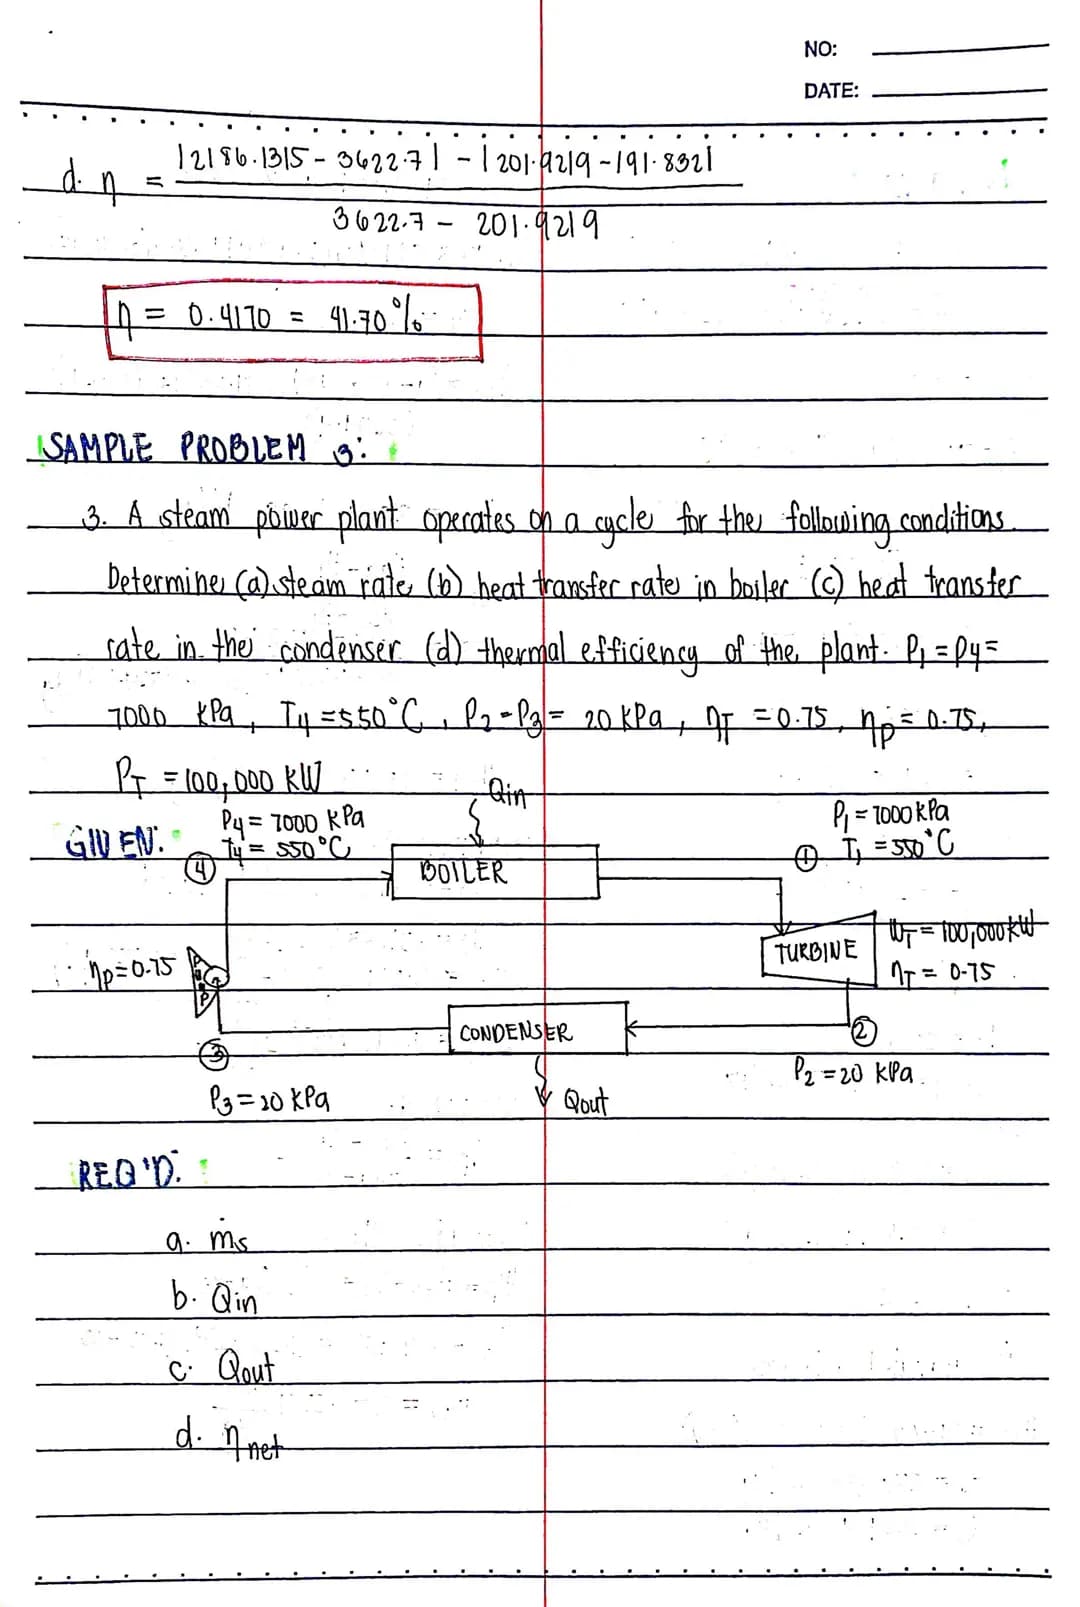 NO:
DATE:
d. η = |2186.1315 - 3622.7| - |201.9219 - 191.832|
3622.7 - 201.9219
η = 0.4170 = 41.70%
SAMPLE PROBLEM 3:
3. A steam power plant operates on a cycle for the following conditions.
Determine (a) steam rate (b) heat transfer rate in boiler (c) heat transfer
rate in the condenser (d) thermal efficiency of the plant. P1 = P4 =
7000 kPa, T4 = 550°C, P2 = P3 = 20 kPa, ηT = 0.75, ηp = 0.75,
PT = 100,000 kW
GIVEN:
P4 = 7000 kPa
T4 = 550°C
4
Qin
BOILER
P1 = 7000 kPa
1 T1 = 550°C
ηp = 0.75
TURBINE
WT = 100,000 kW
ηT = 0.75
CONDENSER
2
P2 = 20 kPa
3
P3 = 20 kPa
Qout
REQ'D:
a. ṁs
b. Qin
c. Qout
d. ηnet